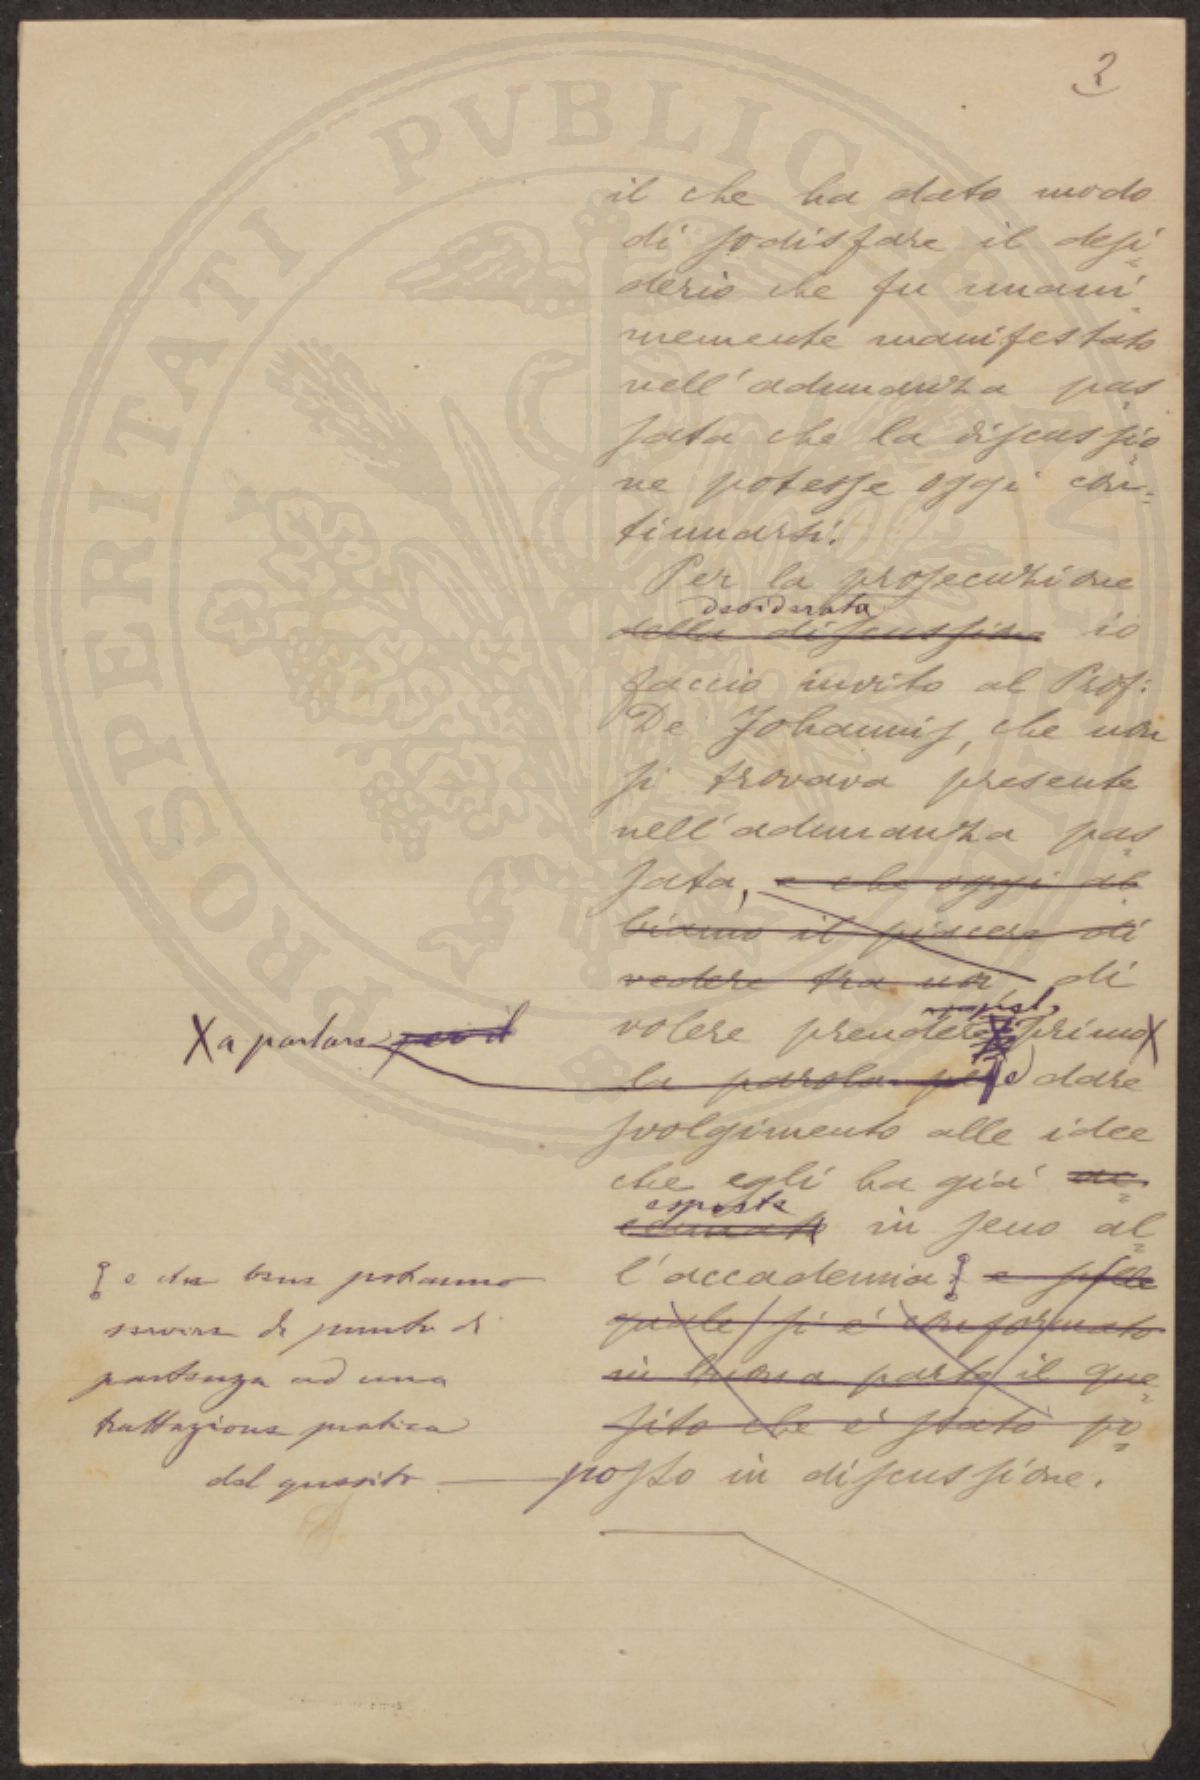 2
PROSPERITATI PVBLICAE
il che ha dato modo
di sodisfare il desi=
derio che fu unani=
memente manifestato
nell'adunanza pas=
sata che la discussio=
ne potesse oggi con=
tinuarsi.
Per la prosecuzione
desiderata
della discussione io
faccio invito al Prof:
De Johannis, che non
si trovava presente
nell'adunanza pas=
sata, e che oggi ab=
biamo il piacere di
vedere tra noi di
volere prendere primo X
X a parlare per il
la parola per e dare
svolgimento alle idee
che egli ha già ac=
esposte
cennato in seno al=
l'accademia e sulle
quale si è conformato
in buona parte il que=
sito che è stato po=
posto in discussione.
e che bene potranno
servire di punto di
partenza ad una
trattazione pratica
del quesito